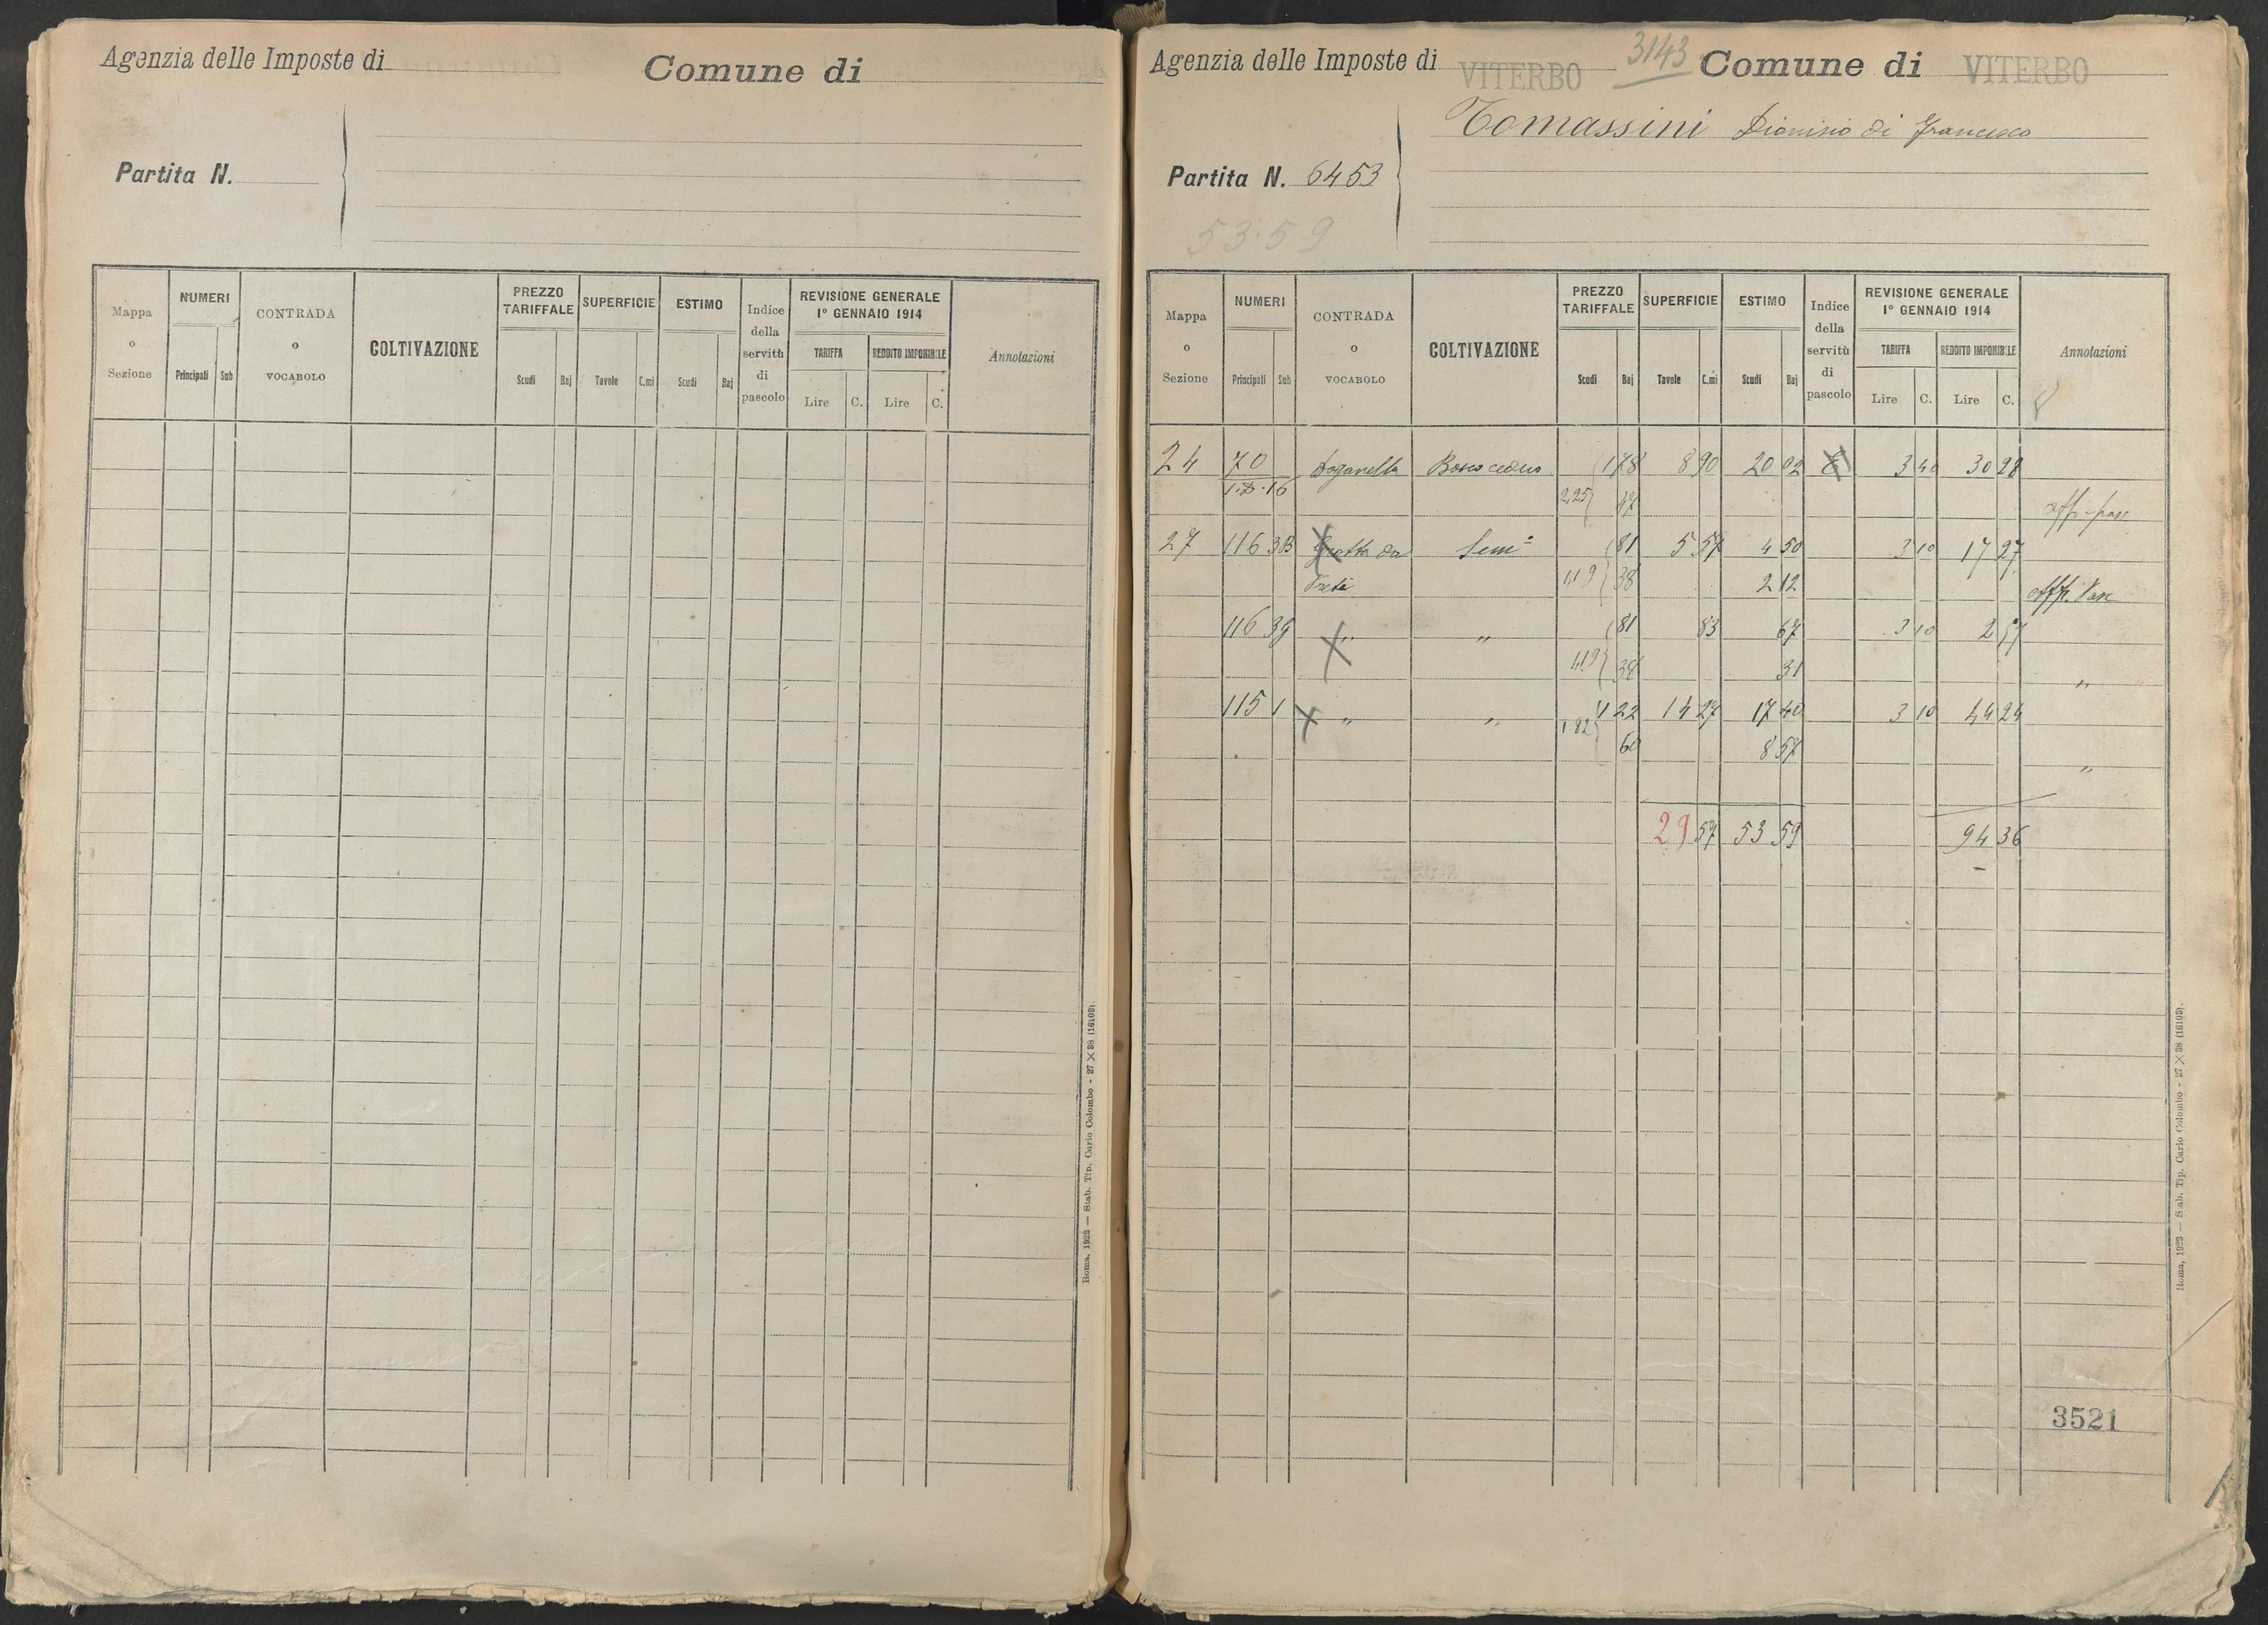 Agenzia delle Imposte di
Comune di
Partita N.
Mappa o Sezione
NUMERI
Principali Sub
CONTRADA o VOCABOLO
COLTIVAZIONE
PREZZO TARIFFALE
Scudi Baj
SUPERFICIE
Tavole C.mi
ESTIMO
Scudi Baj
Indice della servitù di pascolo
REVISIONE GENERALE
1° GENNAIO 1914
TARIFFA
Lire C.
REDDITO IMPONIBILE
Lire C.
Annotazioni
Roma, 1923 — Stab. Tip. Carlo Colombo - 27 × 38 (16103).
Agenzia delle Imposte di VITERBO
3143
Comune di VITERBO
Tomassini Dionisio di Francesco
Partita N. 6453
53:59
Mappa o Sezione
NUMERI
Principali Sub
CONTRADA o VOCABOLO
COLTIVAZIONE
PREZZO TARIFFALE
Scudi Baj
SUPERFICIE
Tavole C.mi
ESTIMO
Scudi Baj
Indice della servitù di pascolo
REVISIONE GENERALE
1° GENNAIO 1914
TARIFFA
Lire C.
REDDITO IMPONIBILE
Lire C.
Annotazioni
24 70 Doganella Bosco ceduo 1 78 8 90 20 02 3 40 30 28
2,25 47
aff. pasc
27 116 3B Grotta dei Sem° 81 5 57 4 50 3 10 17 27
Preti 1,19 38 2 12
aff. Pasc
116 39 " " 81 83 67 3 10 2 57
1,19 38 31
"
115 1 " " 1 22 14 27 17 40 3 10 44 24
1.82 60 8 57
"
29 57 53 59 94 36
3521
Roma, 1923 — Stab. Tip. Carlo Colombo - 27 × 38 (16103).